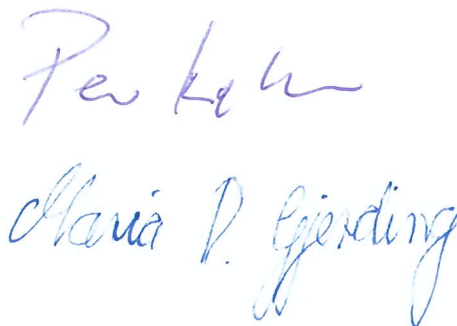 Per
Maria D. Gjerding